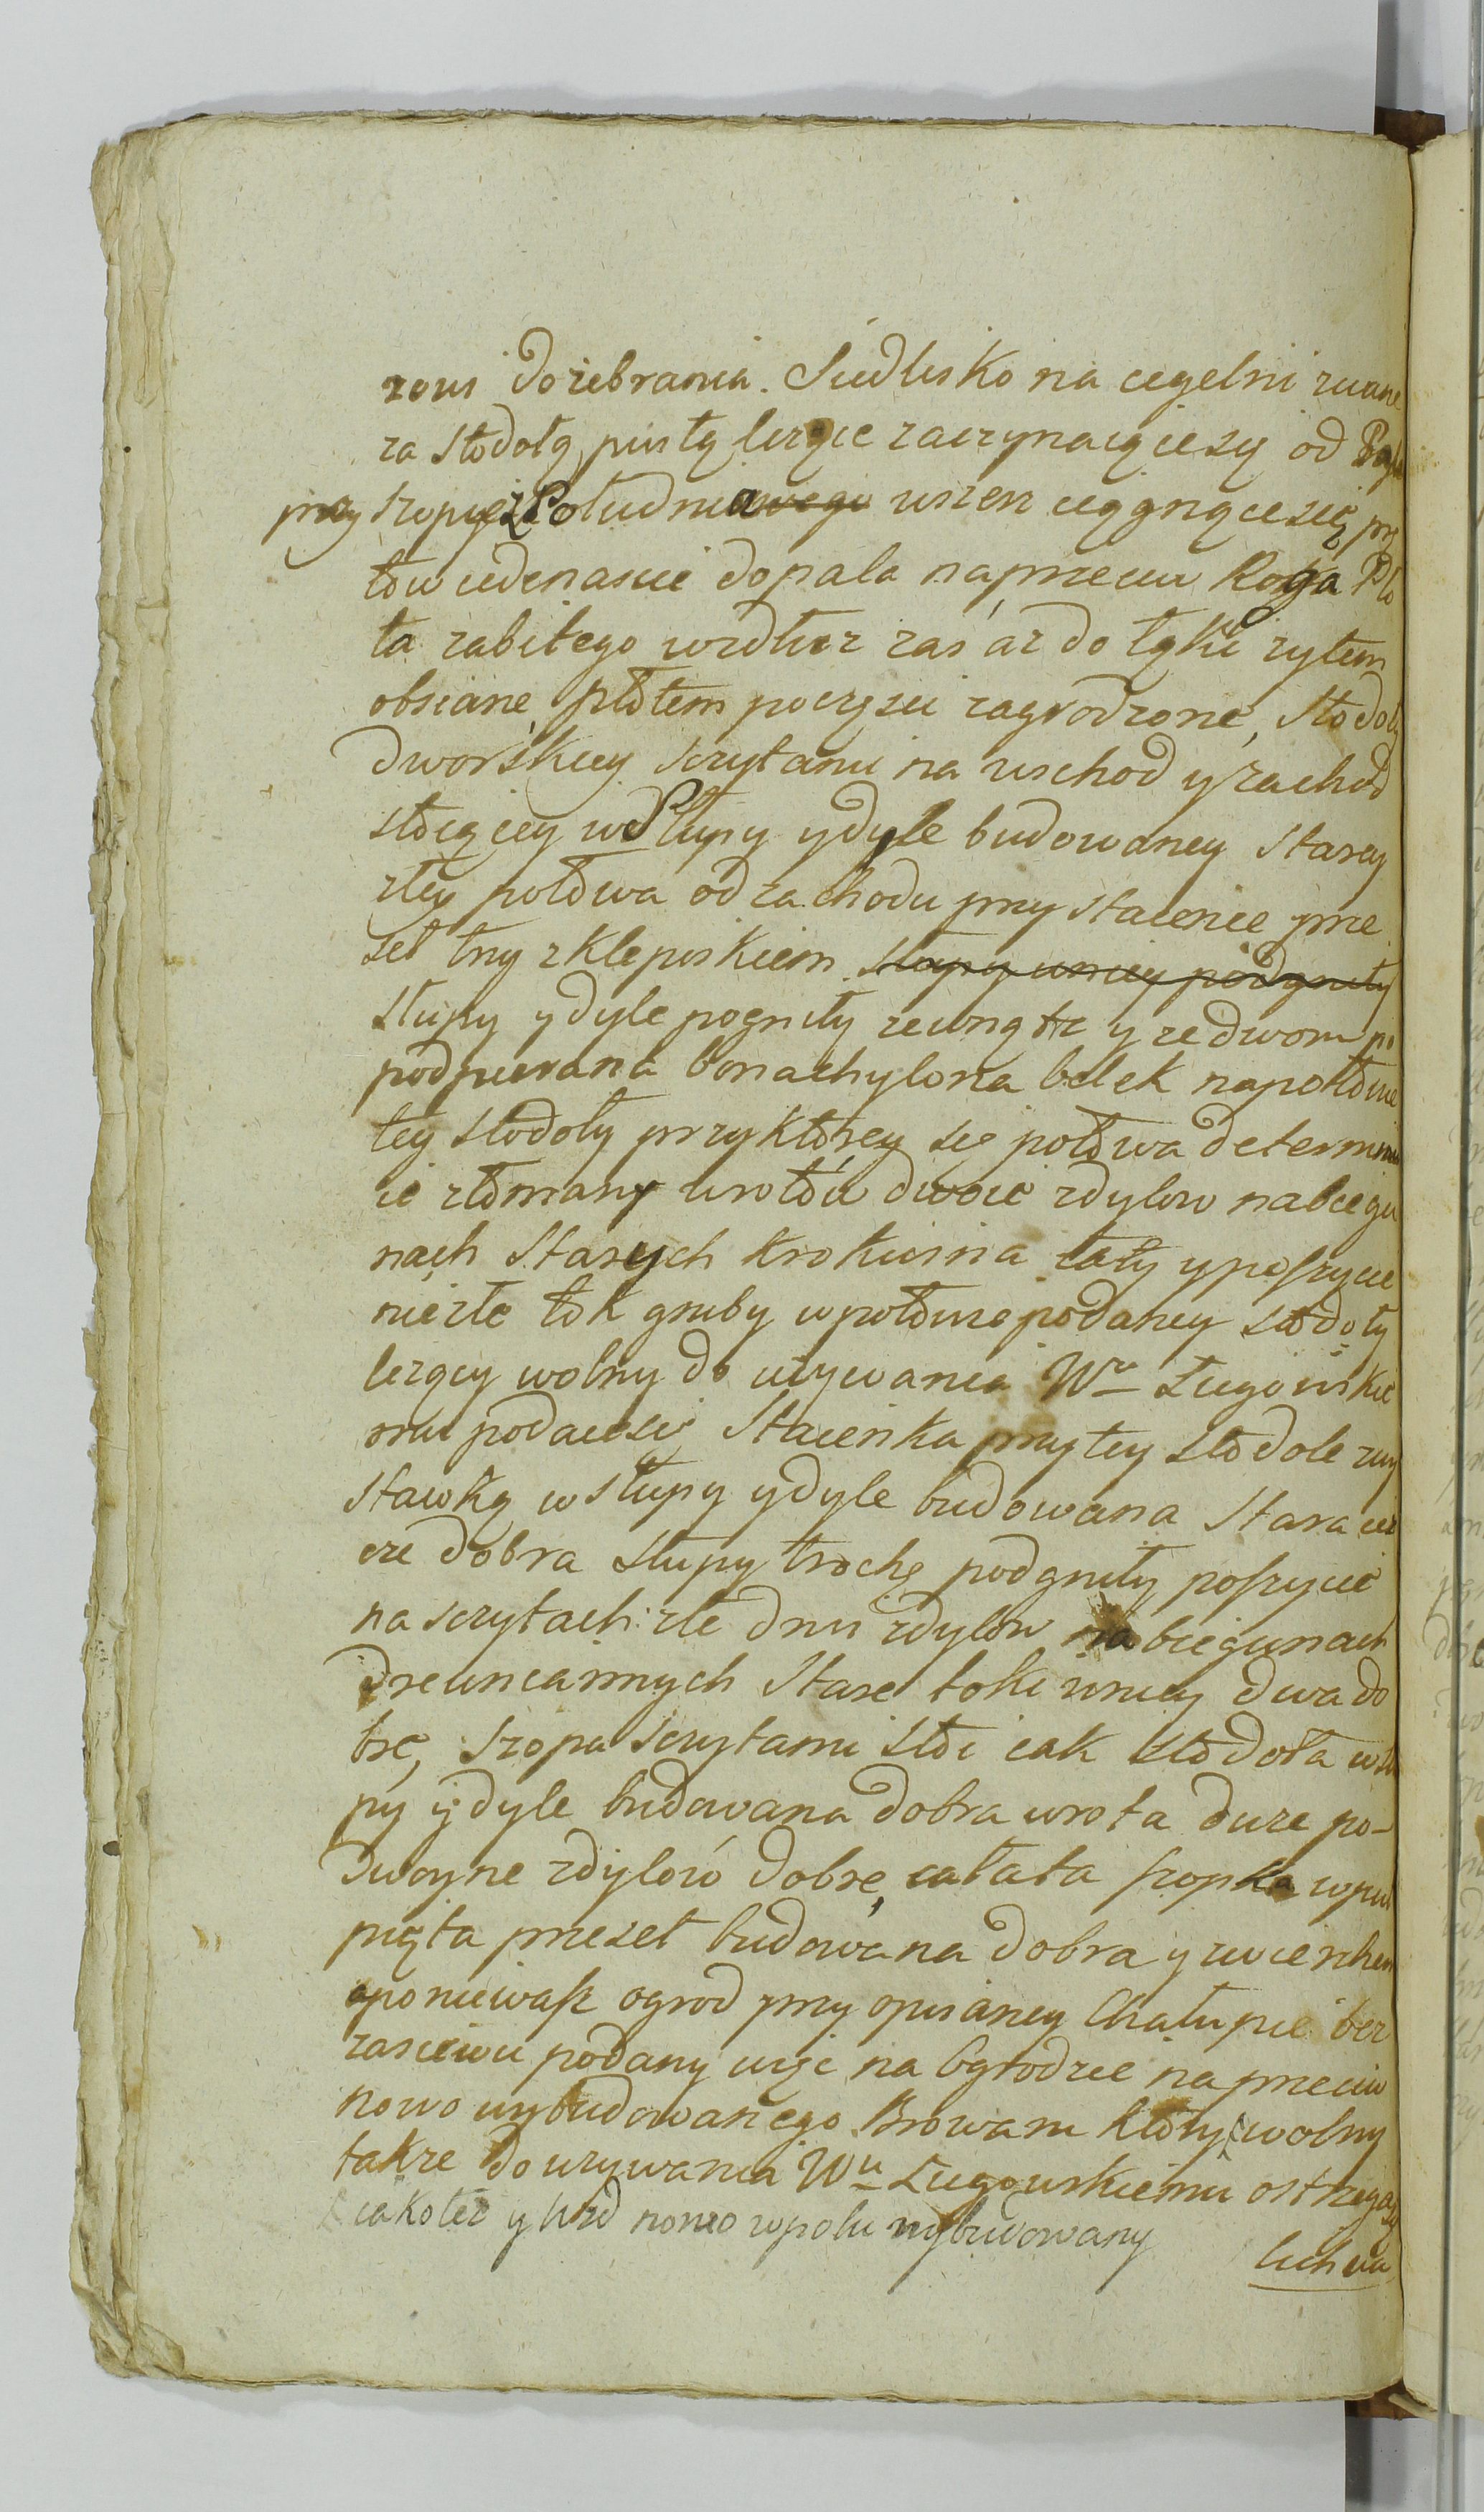 rowi do zebrania. Siedlisko na cegelni zwane
za stodołą pustą lezące zaczynaiące się od
przy szopie z Południa wszerz ciągnące się prę
tow iedenascie do pala naprzeciw Roga Pło
ta zabitego wzdłuz zas az do łąki zytem
obsiane płotem poczęsci zagrodzone, Stodoły
dworskiey sczytami na wschod y zachod
stoiącey w Słupy y dyle budowaney starey
złey połowa od zachodu przy staience prze
seł trzy z klepiskiem słupy wniey podgniły
słupy y dyle pogniły zewnątrz y ze dworu
podpierana bo nachylona belek na połowie
tey stodoły przy ktorey się połowa determinu
ie złomany wrotow dwoie z dylow na biegu
nach starych krokwina cały y poszycie
niezłe tok gruby w połowie podaney stodoły
lezący wolny do uzywania Wu Ługowskie
mu podaie się Staienka przy tey stodole z wy
stawką w słupy y dyle budowana stara ie
cze dobra słupy trochę podgniły poszycie
na sczytach złe drzwi z dylow na biegunach
drewnianych stare toki wniey dwa do
bre, Szopa sczytami stoi iak stodoła w słu
py y dyle budowana dobra wrota duze po-
dwoyne z dylow dobre, cała ta szopka w puł
pięta przeseł budowana dobra y z wierzchem
a poniewasz ogrod przy opisaney Chałupie bez
zasiewu podany więc na Ogrodzie naprzeciw
nowo wybudowanego Browaru ktory wolny
takze do uzywania Wu Ługowskiemu ostrzega się
iakotez y nowo w polu wybudowany